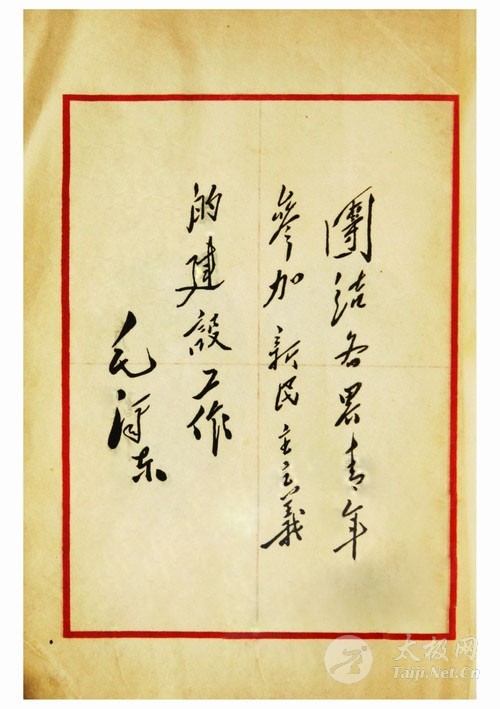 團結各界青年
參加新民主主義
的建設工作
毛澤东
太极网
Taiji.Net.Cn